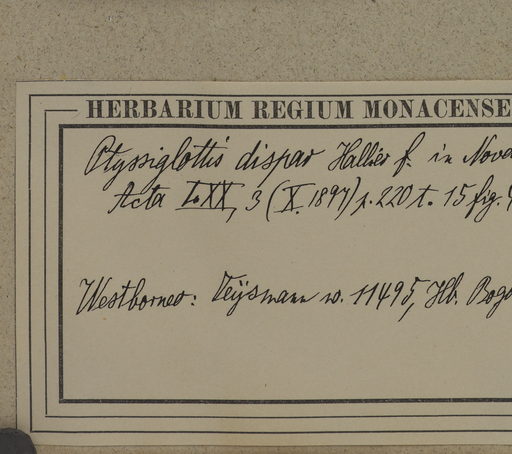 HERBARIUM REGIUM MONACENSE
Ptyssiglottis dispar Hallier f. in Nova
Acta LXX, 3 (X. 1897) p. 220 t. 15 fig.
Westborneo: Teijsmann n. 11495, Hb. Bogo